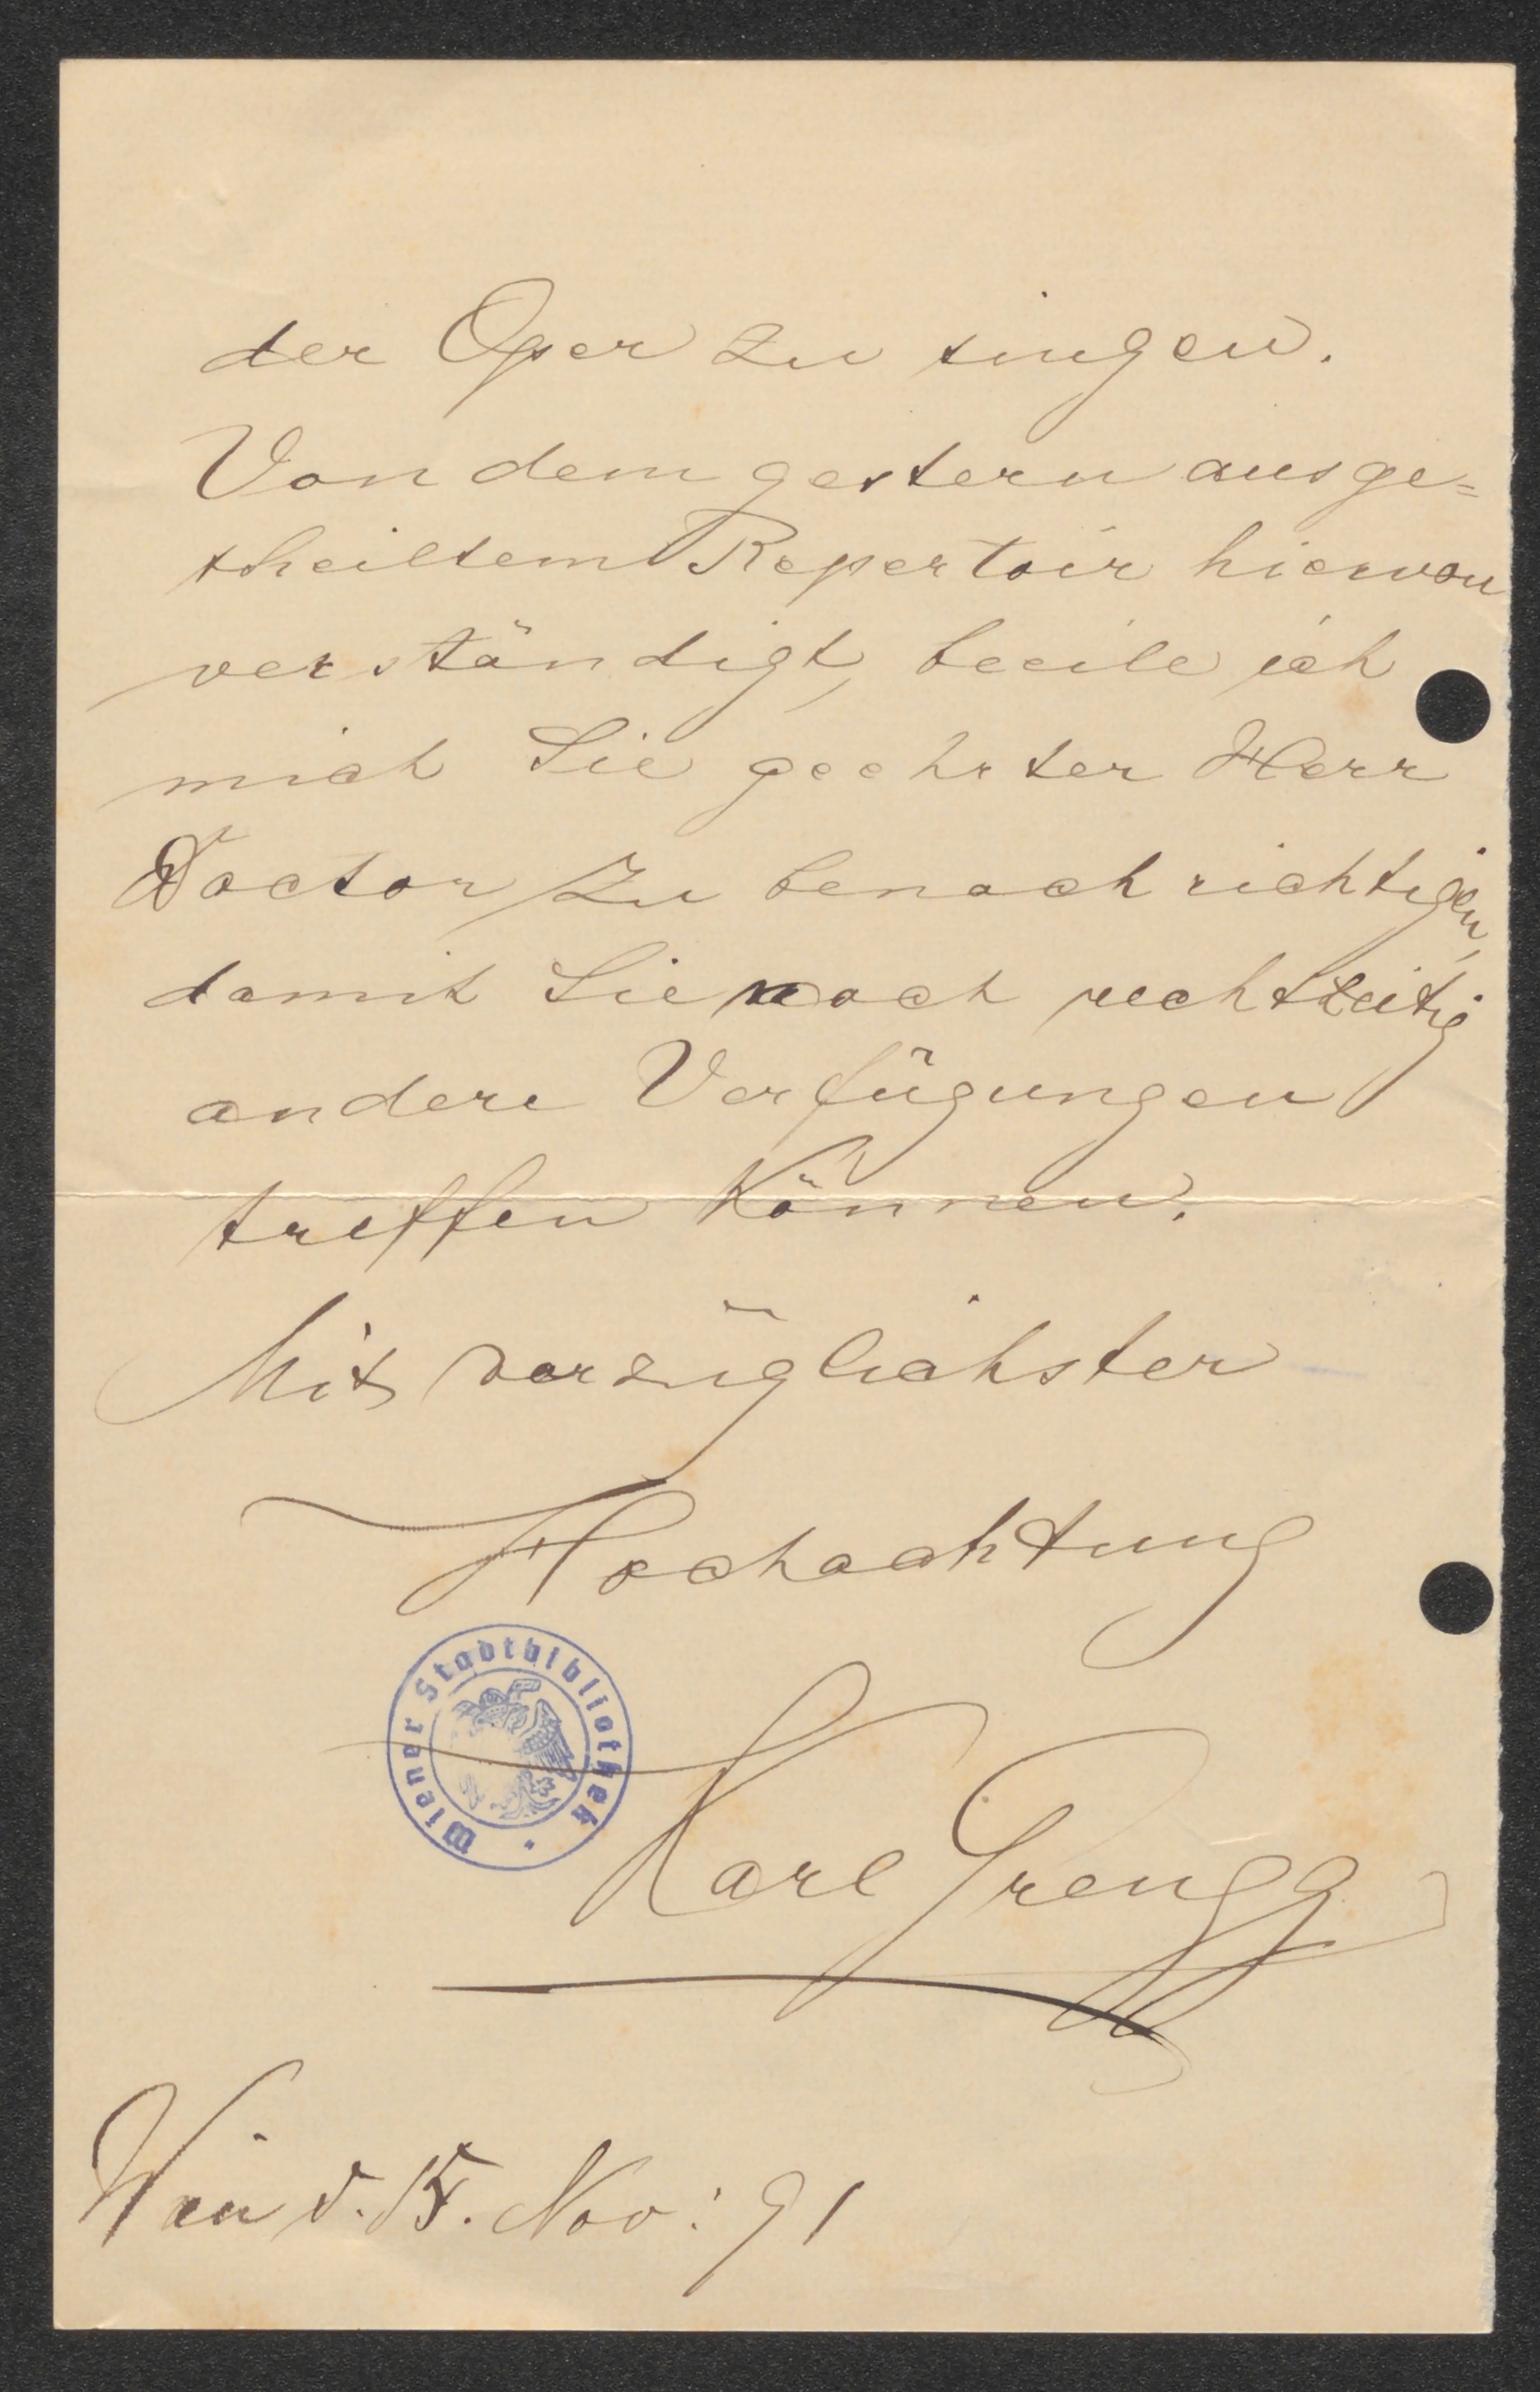 der Oper zu singen.
Von dem gestern ausge=
theiltem Repertoir hiervon
verständigt, beeile ich
mich Sie geehrter Herr
Doctor zu benachrichtigen,
damit Sie noch rechtzeitig
andere Verfügungen
treffen können.
Mit vorzüglichster
Hochachtung
Wiener Stadtbibliothek
Karl Grengg
Wien d. 15. Nov: 91